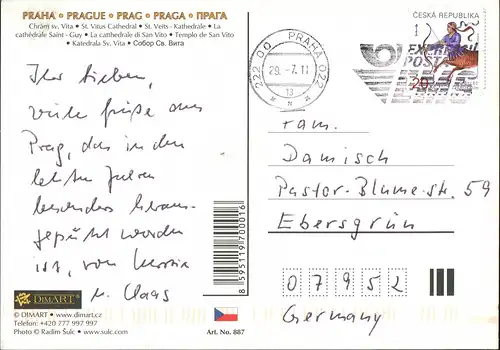 PRAHA • PRAGUE • PRAG • PRAGA • ПРАГА
Chrám sv. Víta • St. Vitus Cathedral • St. Veits - Kathedrale • La
cathédrale Saint - Guy • La cattedrale di San Vito • Templo de San Vito
• Katedrala Sv. Vita • Собор Св. Вита
Ihr Lieben,
viele Grüße aus
Prag, das in den
letzten Jahren
besonders heraus-
geputzt worden
ist, von
u. Claas
DIMART
© DIMART • www.dimart.cz
Telefon: +420 777 997 997
Photo © Radim Šulc • www.sulc.com
8595119700016
Art. No. 887
222 00 PRAHA 022
29. -7. 11
13
ČESKÁ REPUBLIKA
POST
20
Fam.
Damisch
Pastor-Blume-str. 59
Ebersgrün
07952
Germany